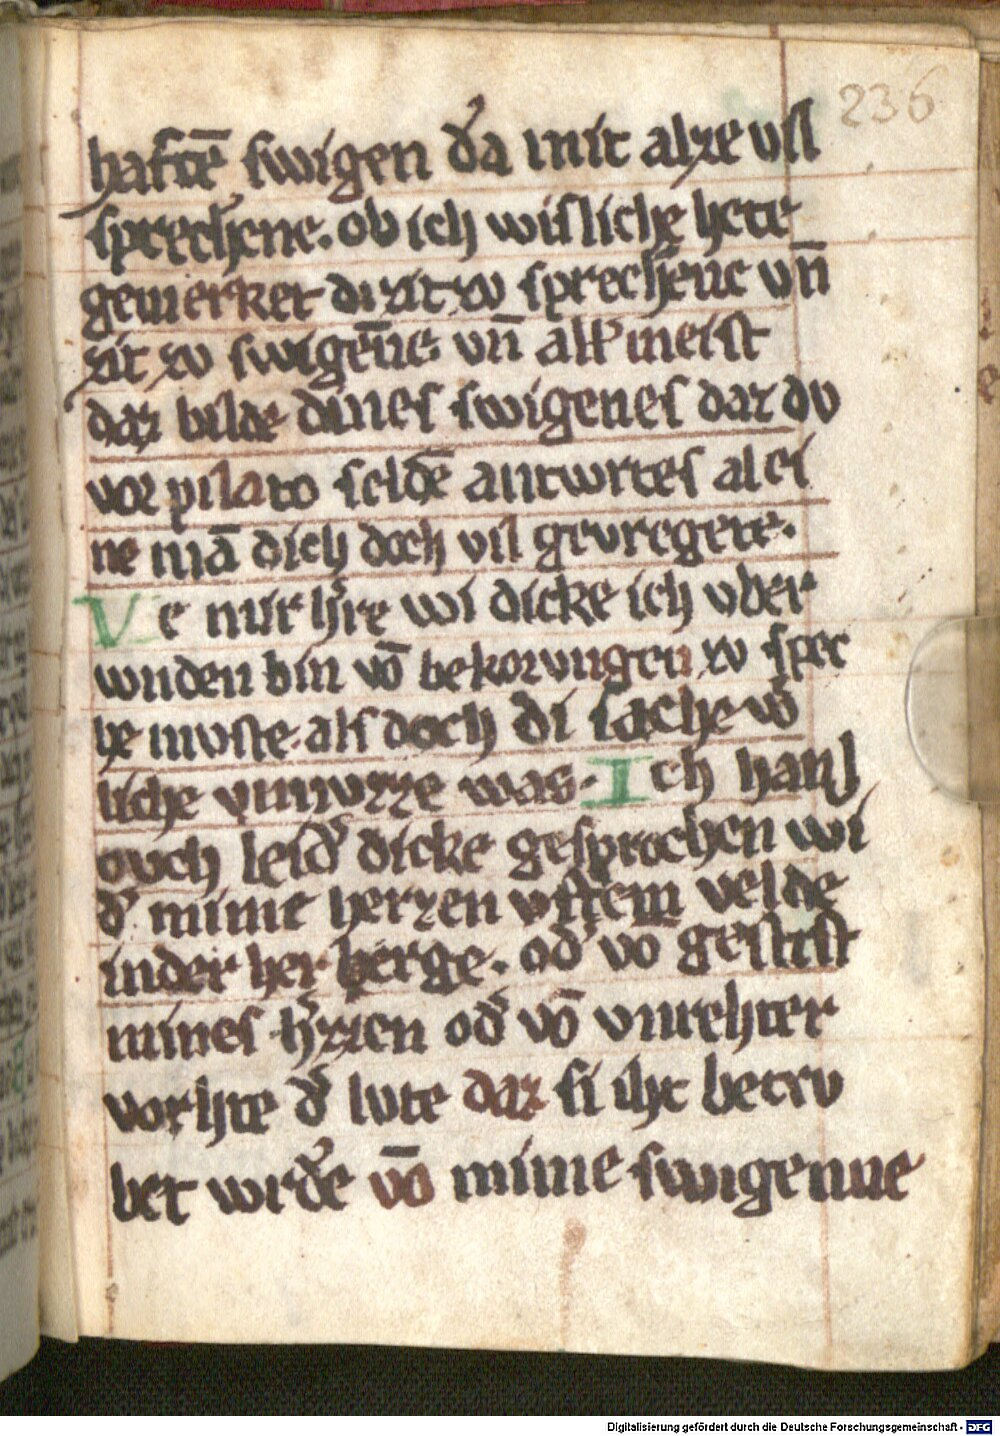 236
haftē swigen da mit alze vil
sprechene. ob ich wisliche hete
gemerket di zit zv sprechēne vn̄
zit zv swigēne. vn̄ allr meist
daz bilde dines swigenes daz dv
vor pilato seldē antwrtes alei
ne mā dich doch vil gevregete.
Ve mir hre wi dicke ich vber
wnden bin vō bekorvngen zv spre
he mvste. als doch di sache vō
liche vnnvzze was. Ich han
ovch leidr dicke gesprochen wi
dr minit herzen vftem velde
inder her berge. odr vō geistst
mines hrzzen odr vō vnrehter
vorhte dr lvte daz si iht betrv
bet wrdē vō mime swigenne
Digitalisierung gefördert durch die Deutsche Forschungsgemeinschaft - DFG